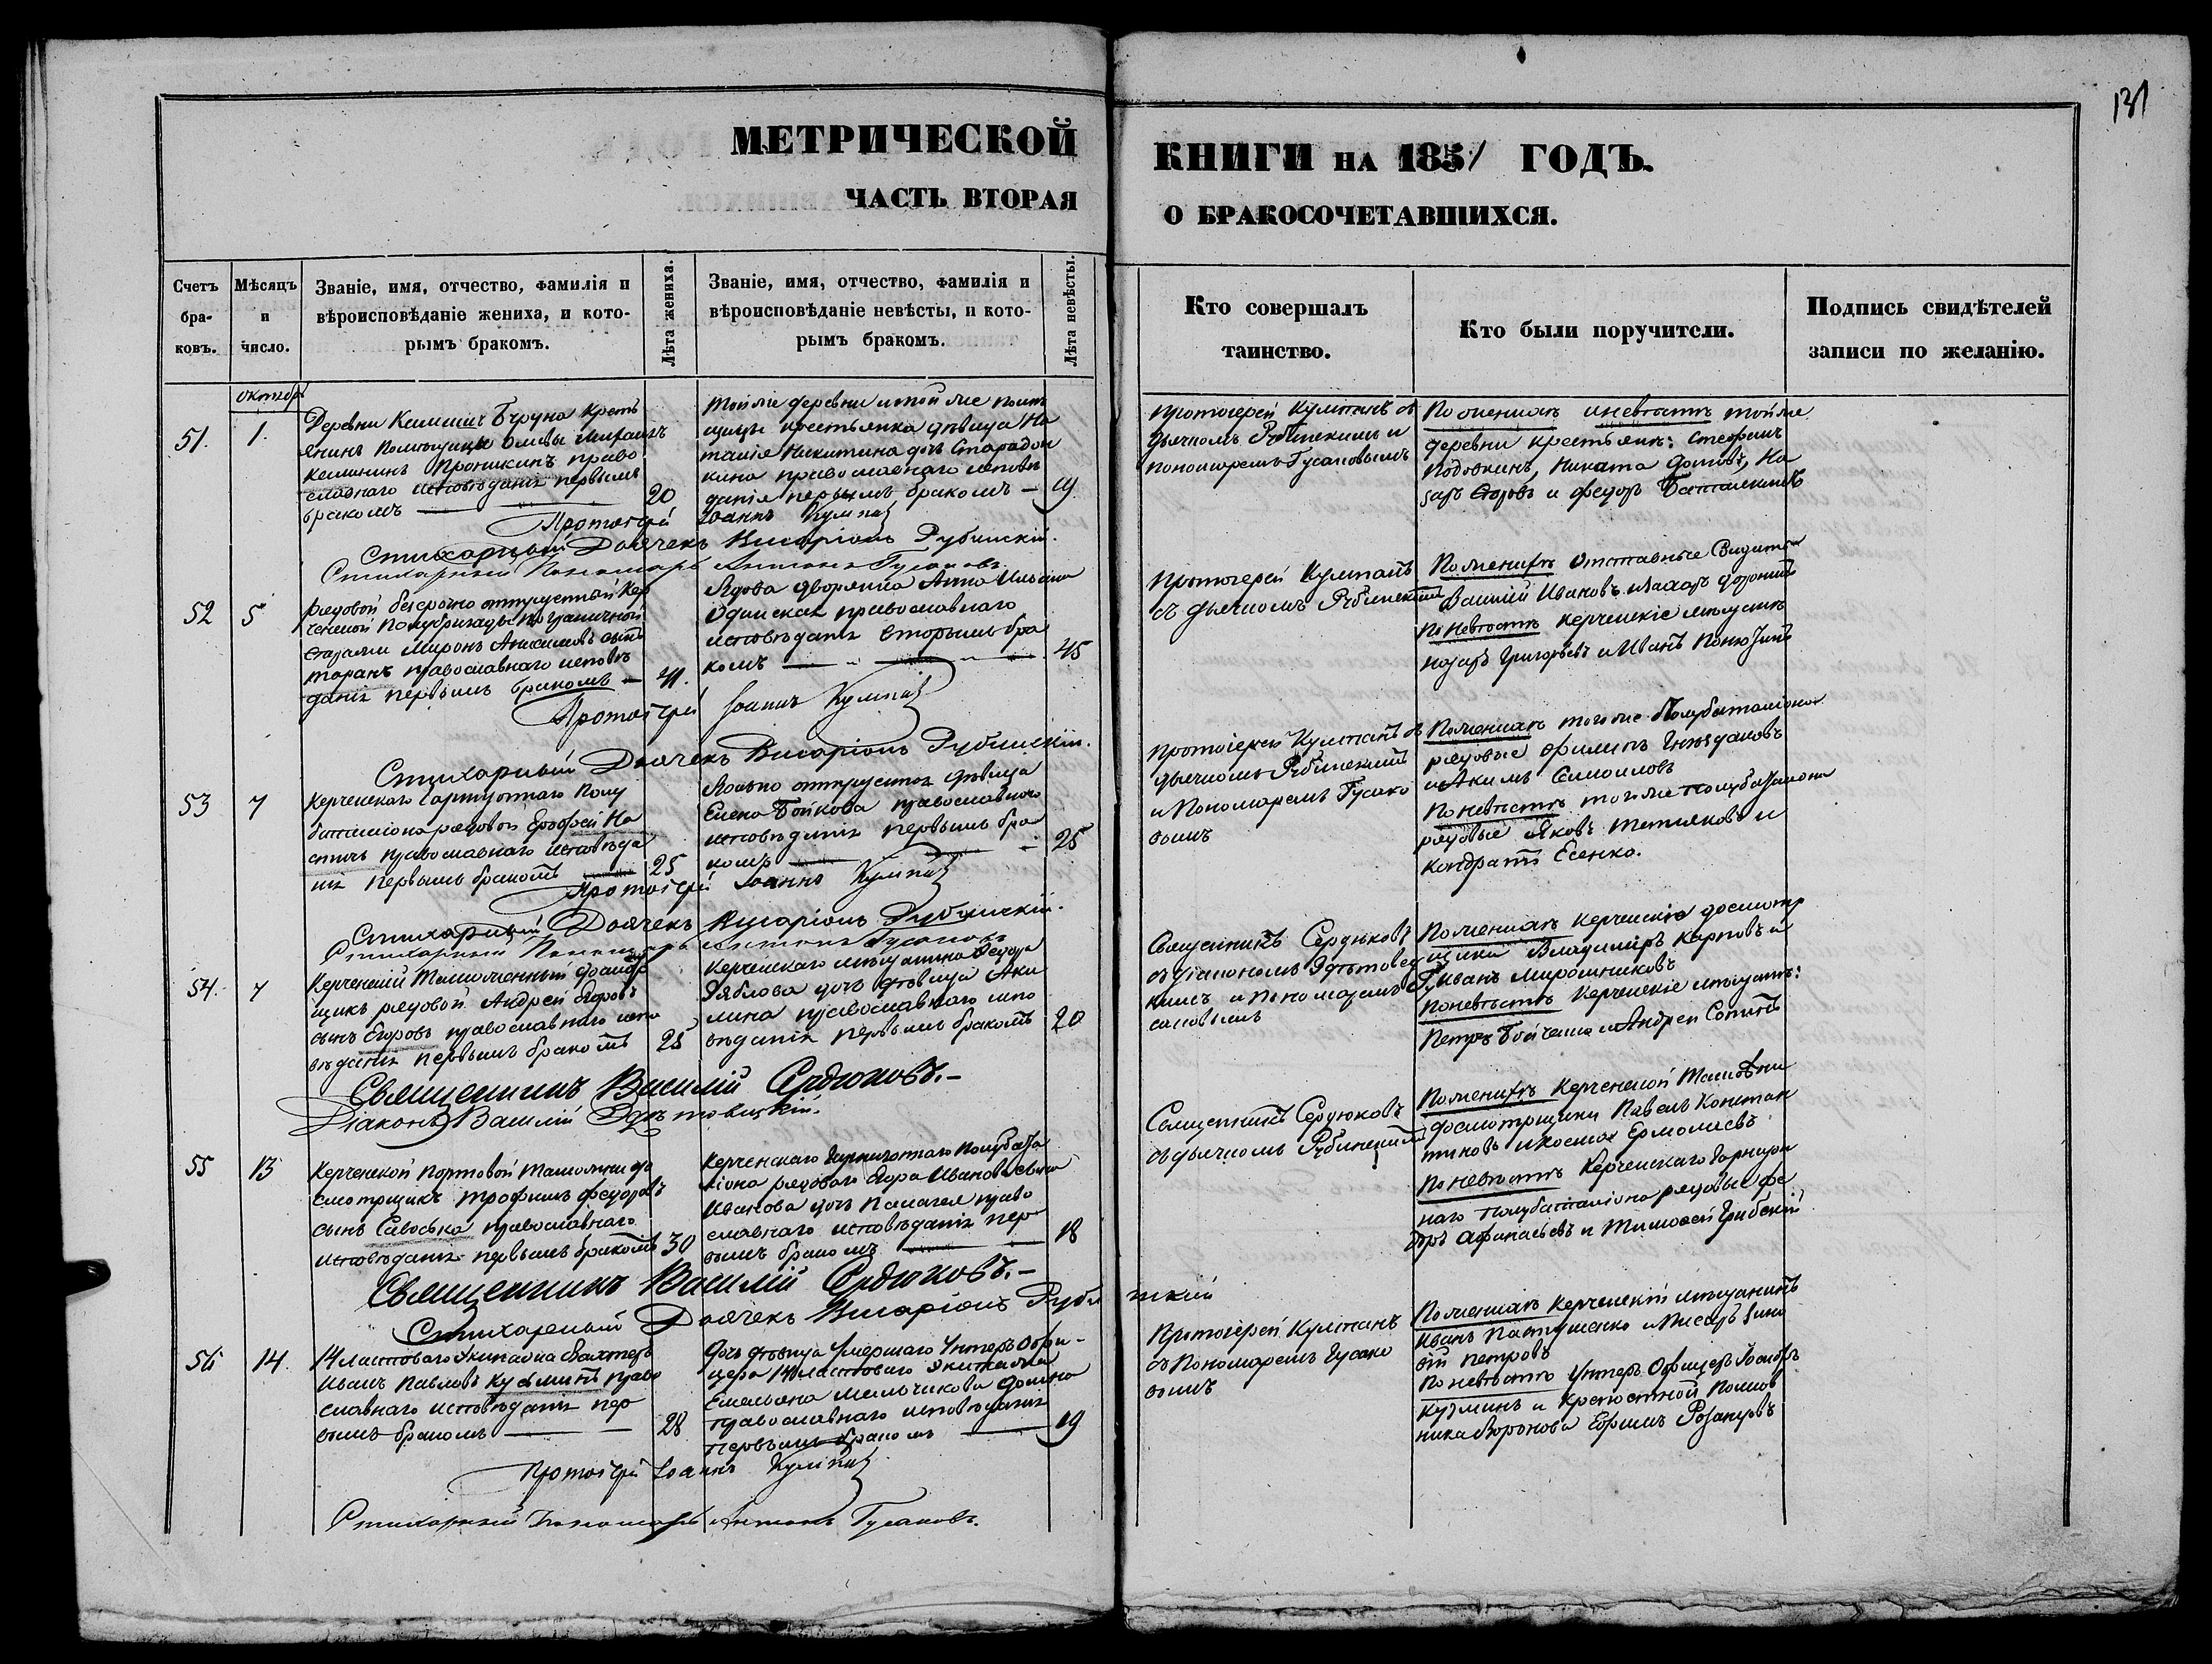 131
МЕТРИЧЕСКОЙ КНИГИ НА 1851 ГОДЪ.
ЧАСТЬ ВТОРАЯ О БРАКОСОЧЕТАВШИХСЯ.
Счетъ бра-ковъ.
Мѣсяцъ и число.
Званіе, имя, отчество, фамилія и вѣроисповѣданіе жениха, и кото-рымъ бракомъ.
Лѣта жениха.
Званіе, имя, отчество, фамилія и вѣроисповѣданіе невѣсты, и кото-рымъ бракомъ.
Лѣта невѣсты.
Кто совершалъ таинство.
Кто были поручители.
Подпись свидѣтелей записи по желанію.
октябр
51. 1.
Деревни
янинъ Помѣщицы
право
славнаго исповѣданія первымъ
бракомъ 20
тойже деревни и той же помѣ
щицы крестьянка дѣвица На
талія Никитина дочь
православнаго исповѣ
данія первымъ бракомъ 19
Протоіерей съ
дьячкомъ Рубинскимъ и
пономаремъ Гусаковымъ
По женихѣ и невѣстѣ той же
деревни крестьяне: Стефанъ
Никита На
заръ и Федоръ
Протоіерей Іоаннъ
Стихарный Дьячекъ Висаріонъ Рубинскій.
Стихарный Пономарь Антонъ Гусаковъ.
52 5
рядовой безсрочно отпускной Кер
ченской Полубригады пограничной
стражи Миронъ сынъ
православнаго исповѣ
данія первымъ бракомъ 41.
Вдова дворянка Анна Ильина
православнаго
исповѣданія вторымъ бра
комъ 45
Протоіерей
съ дьячкомъ Рубинскимъ
По женихѣ Отставные
Василій Ивановъ и Захаръ
По невѣстѣ Керченскіе мѣщане
Назаръ Григорьевъ и Иванъ
Протоіерей Іоаннъ
Стихарный Дьячекъ Висаріонъ Рубинскій.
53 7
Керченскаго Гарнизоннаго Полу
баталіона рядовой Ерофей На
православнаго исповѣда
нія первымъ бракомъ 25
Вольно отпускная дѣвица
Елена Бойкова православнаго
исповѣданія первымъ бра
комъ 25
Протоіерей съ
дьячкомъ Рубинскимъ
и Пономаремъ Гусако
вымъ
По женихѣ того же Полубаталіона
рядовые Филипъ Гнѣздиловъ
и Акимъ Самойловъ
По невѣстѣ того же полубаталіона
рядовые Яковъ и
Кондратъ Есенко.
Протоіерей Іоаннъ
Стихарный Дьячекъ Висаріонъ Рубинскій.
Стихарный Пономарь Антонъ Гусаковъ
54. 7
Керченскій Таможенный
щикъ рядовой Андрей Егоровъ
сынъ Егоровъ православнаго испо
вѣданія первымъ бракомъ 25
Керченскаго мѣщанина Федора
Рябова дочь дѣвица Аку
лина православнаго испо
вѣданія первымъ бракомъ 20
Священникъ Сердюковъ
съ діакономъ
кимъ и пономаремъ Гу
саковымъ
По женихѣ Керченскіе досмотр
щики Владиміръ Карповъ и
Иванъ Мирошниковъ
По невѣстѣ Керченскіе мѣщане:
Петръ Бойченко и Андрей
Священникъ Василій Сердюковъ.
Діаконъ Василій
55 13
Керченской портовой Таможни до
смотрщикъ Трофимъ Федоровъ
сынъ Савоська православнаго
исповѣданія первымъ бракомъ 30
Керченскаго Гарнизоннаго Полубата
ліона рядоваго Егора Иванова сына
Иванова дочь Пелагея право
славнаго исповѣданія пер
вымъ бракомъ 18
Священникъ Сердюковъ
съ дьячкомъ Рубинскимъ
По женихѣ Керченской Таможни
досмотрщики Павелъ Констан
тиновъ и Косма Ермолаевъ
По невѣстѣ Керченскаго Гарнизон
наго полубаталіона рядовые Фе
доръ Афанасьевъ и Тимофей
Священникъ Василій Сердюковъ.
Стихарный Дьячекъ Висаріонъ Рубинскій
56 14.
14 ластоваго Экипажа Вахтеръ
Иванъ Павловъ Кузьминъ право
славнаго исповѣданія пер
вымъ бракомъ 28
Дочь дѣвица умершаго Унтеръ Офи-
цера 14 ластоваго Экипажа
Емельяна Мельчикова Домна
православнаго исповѣданія
первымъ бракомъ 19
Протоіерей
съ Пономаремъ Гусако
вымъ
По женихѣ Керченскій мѣщанинъ
Иванъ и Писарь Зино
вій Петровъ
По невѣстѣ Унтеръ Офицеръ
Кузминъ и Крѣпостной Помѣщ
ника Воронова Ефимъ
Протоіерей Іоаннъ
Стихарный Пономарь Антонъ Гусаковъ.